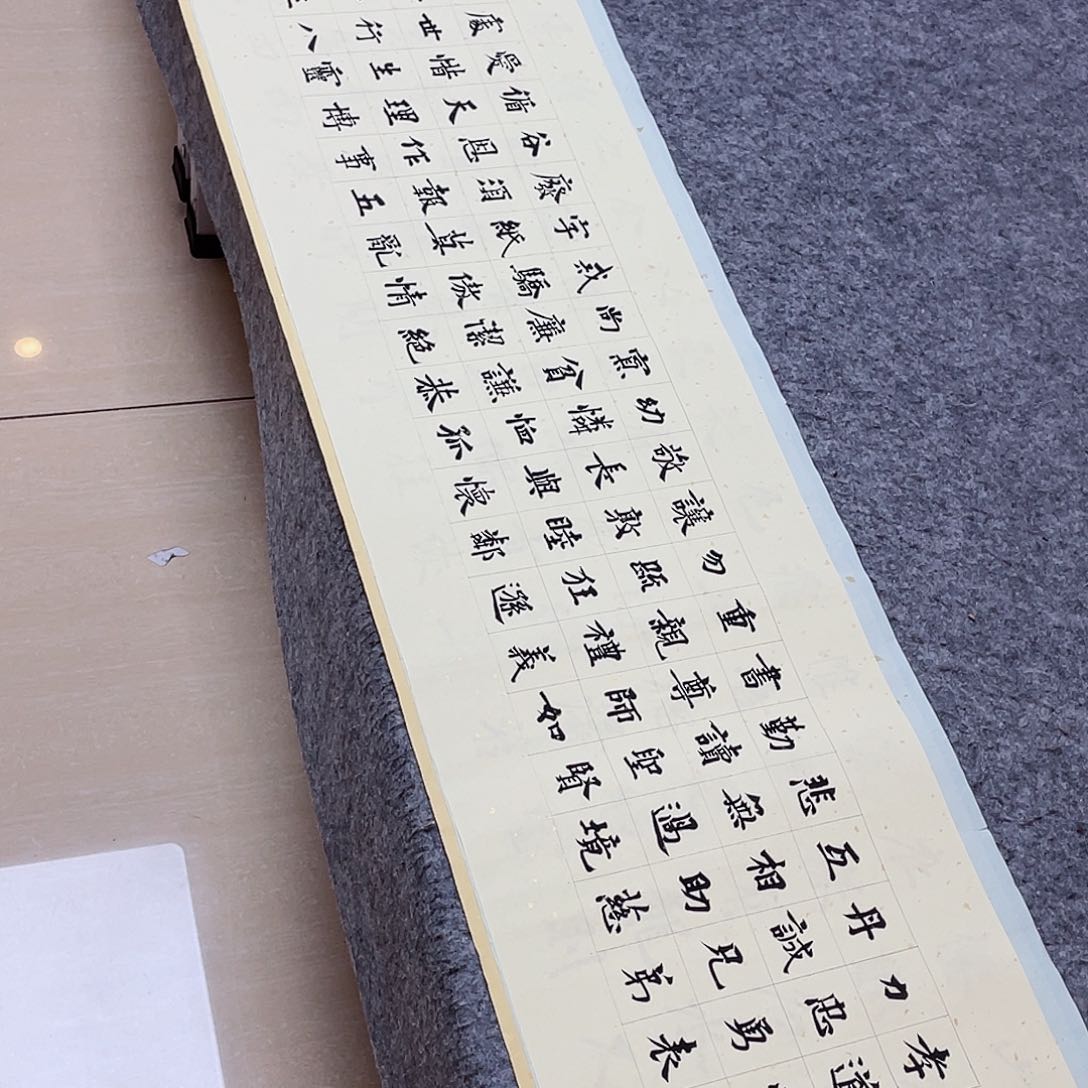 孝道
力忠勇表
丹誠兄弟
互相助慈
悲無過境
勤讀聖賢
書尊師如
重親禮義
勿疏狂遜
讓敦睦鄰
敬長與懷
幼憐恤孤
寡貧謙恭
尚廉潔絕
戒驕傲情
字紙莫亂
廢須報五
谷恩作事
循天理博
愛惜生靈
處世行八